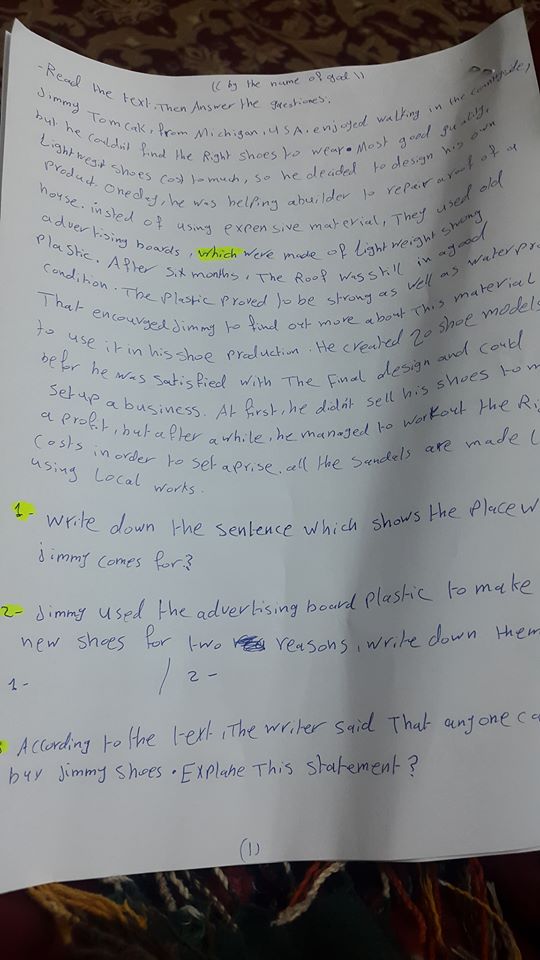 (( by the name of god ))
-Read the text. Then Answer the questiones.
Jimmy Tomcak, from Michigan, USA. enjoyed walking in the countryside,
but he couldn't find the Right shoes to wear. Most good quality,
Lightwegit shoes cost to much, so he decided to design his own
product. One day, he was helping abuilder to repair a roof of a
house. insted of using expensive material, They used old
advertising boards, which were made of light weight strong
plastic. After six months, The Roof was still in a good
condition. The plastic proved to be strong as well as waterpro
That encouvged Jimmy to find out more about This material
to use it in his shoe production. He created 20 shoe models
befor he was satisfied with The final design and could
set up a business. At first, he didn't sell his shoes to m
a profit, but after a while, he managed to workout the Ri
costs in order to set aprise. all the sandels are made l
using Local works.
1- Write down the sentence which shows the place w
Jimmy comes for?
2- Jimmy used the advertising board plastic to make
new shoes for two reasons, write down them
1- / 2-
According to the text, The writer said That anyone ca
buy Jimmy shoes. Explane This statement?
(1)